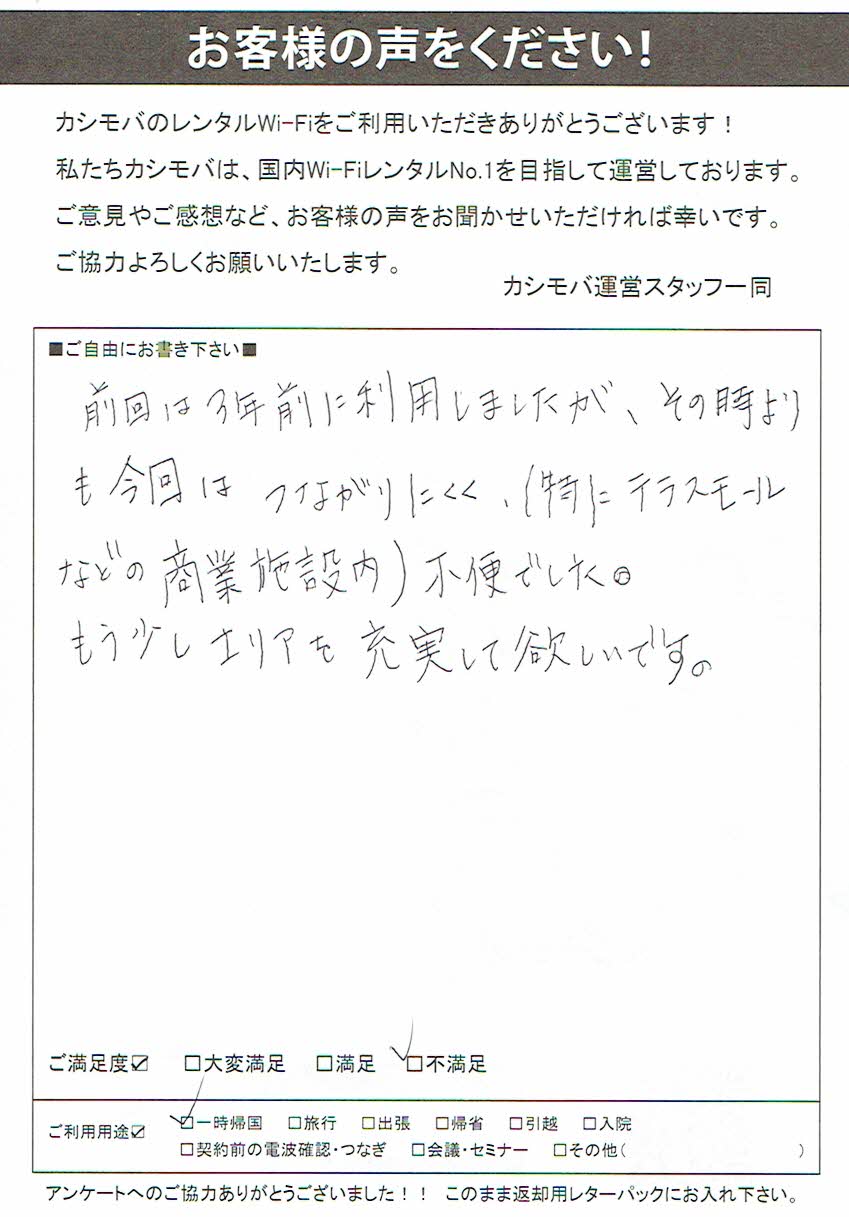 お客様の声をください!
カシモバのレンタルWi-Fiをご利用いただきありがとうございます！
私たちカシモバは、国内Wi-FiレンタルNo.1を目指して運営しております。
ご意見やご感想など、お客様の声をお聞かせいただければ幸いです。
ご協力よろしくお願いいたします。
カシモバ運営スタッフ一同
■ご自由にお書き下さい■
前回は3年前に利用しましたが、その時より
も今回は つながりにくく、(特にテラスモール
などの商業施設内)不便でした。
もう少しエリアを充実して欲しいです。
ご満足度☑ □大変満足 □満足 ☑不満足
ご利用用途☑ ☑一時帰国 □旅行 □出張 □帰省 □引越 □入院
□契約前の電波確認・つなぎ □会議・セミナー □その他( )
アンケートへのご協力ありがとうございました！！ このまま返却用レターパックにお入れ下さい。